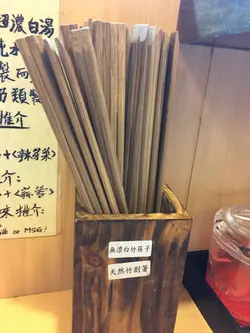 超濃白湯
推介
+<辣芽菜
介:
+<蒜蓉>
味推介:
or MSG!
無漂白竹筷子
天然竹割箸